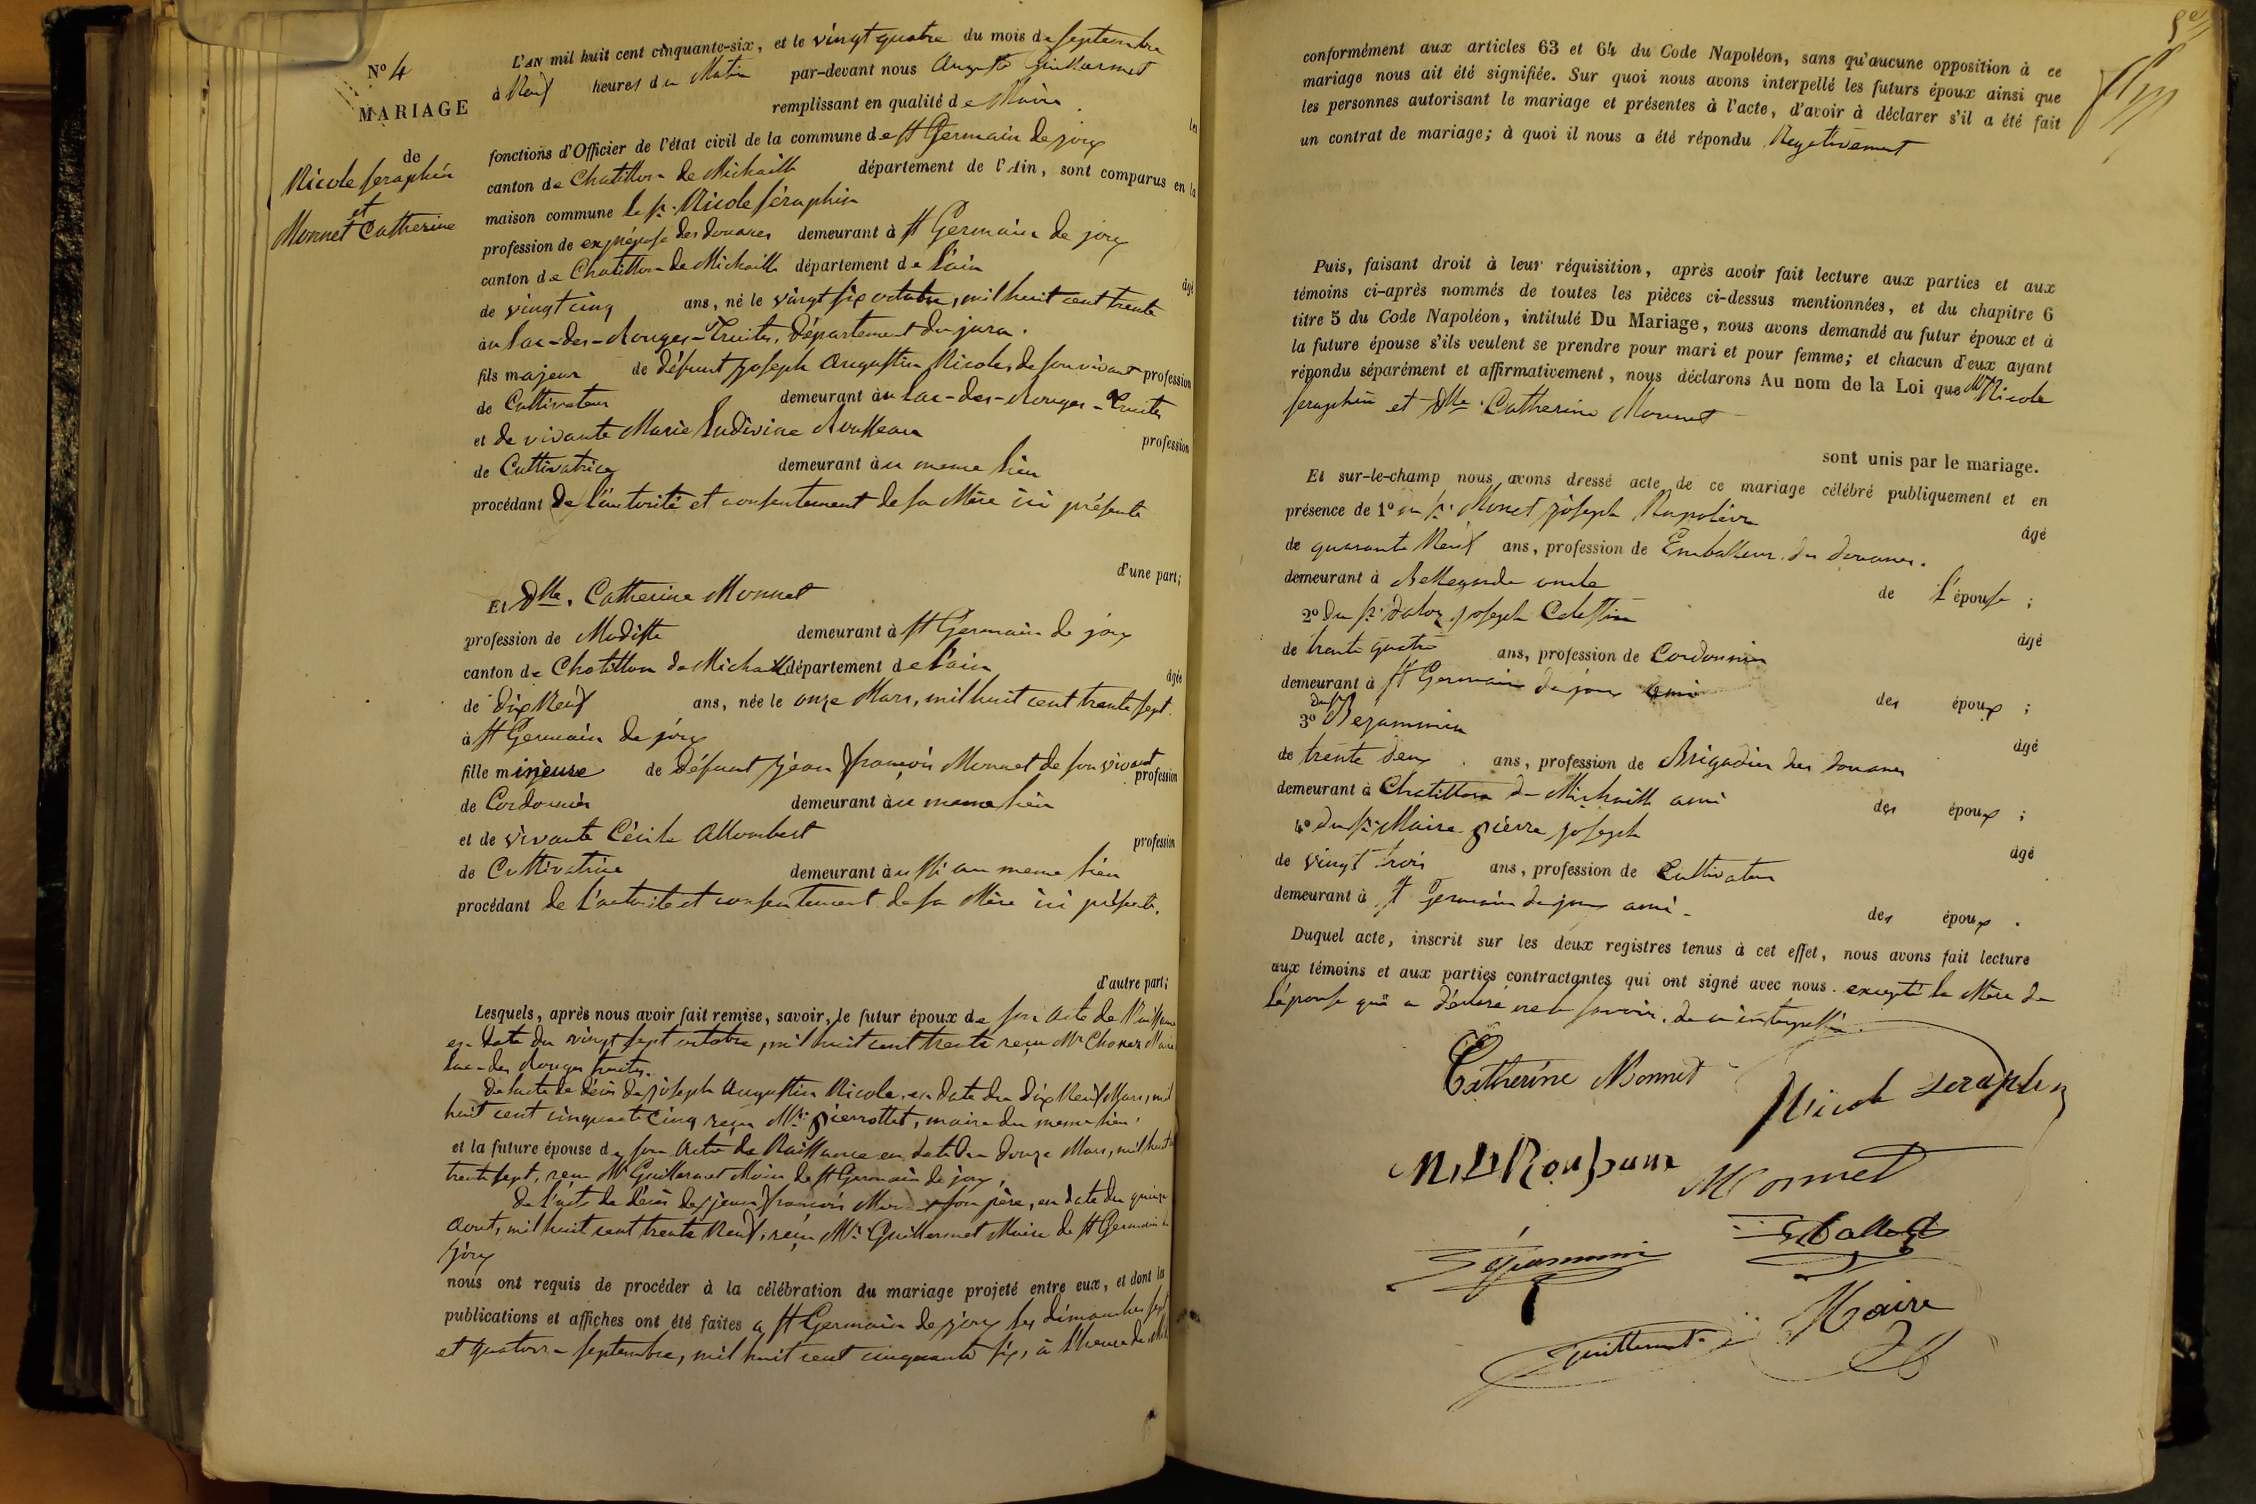 N° 4
MARIAGE
de
Nicole Seraphin
et
Monnet Catherine
L'AN mil huit cent cinquante-six, et le vingt quatre du mois de septembre
à Neuf heures du Matin par-devant nous Auguste Guillermet
remplissant en qualité de Maire les
fonctions d'Officier de l'état civil de la commune de St Germain de joux
canton de Chatillon de Michaille département de l'Ain, sont comparus en la
maison commune le sr. Nicole Séraphin
profession de expréposé des douanes demeurant à St Germain de joux
canton de Chatillon de Michaille département de l'ain
âgé
de vingt cinq ans, né le vingt six octobre, mil huit cent trente
au Lac-des-Rouges-Truites, département du jura.
fils majeur de défunt joseph Augustin Nicole, de son vivant profession
de Cultivateur demeurant au Lac-des-Rouges-Truites
et de vivante Marie Ludivine Rousseau profession
de Cultivatrice demeurant au meme lieu
procédant de l'autorité et consentement de sa Mère ici présente
d'une part;
Et Dlle. Catherine Monnet
profession de Modiste demeurant à St Germain de joux
canton de Chatillon de Michaille département de l'ain
âgée
de dix Neuf ans, née le onze Mars, mil huit cent trente sept.
à St Germain de joux
fille mineure de défunt jean françois Monnet de son vivant profession
de Cordonnier demeurant au meme lieu
et de vivante Cécile Allombert profession
de Cultivatrice demeurant aussi au meme lieu
procédant de l'autorité et consentement de sa Mère ici présente.
d'autre part;
Lesquels, après nous avoir fait remise, savoir, le futur époux de son acte de Naissance
en date du vingt sept octobre, mil huit cent trente reçu Mr Maire
Lac-des Rouges truites.
De l'acte de décès de joseph Augustin Nicole, en date du dix Neuf Mars, mil
huit cent cinquante cinq reçu Mr. Pierrottet, maire du meme lieu.
et la future épouse de son acte de Naissance en date du douze Mars, mil huit ct
trente sept, reçu Mr Guillermet Maire de St Germain de joux,
De l'acte de décès de jean françois son père, en date du quinze
Aout, mil huit cent trente Neuf, reçu Mr. Guillermet Maire de St Germain de
joux
nous ont requis de procéder à la célébration du mariage projeté entre eux, et dont les
publications et affiches ont été faites à St Germain de joux les dimanches sept
et quatorze septembre, mil huit cent cinquante six, à l'heure de Midi
5e
conformément aux articles 63 et 64 du Code Napoléon, sans qu'aucune opposition à ce
mariage nous ait été signifiée. Sur quoi nous avons interpellé les futurs époux ainsi que
les personnes autorisant le mariage et présentes à l'acte, d'avoir à déclarer s'il a été fait
un contrat de mariage; à quoi il nous a été répondu Negativement
Puis, faisant droit à leur réquisition, après avoir fait lecture aux parties et aux
témoins ci-après nommés de toutes les pièces ci-dessus mentionnées, et du chapitre 6
titre 5 du Code Napoléon, intitulé Du Mariage, nous avons demandé au futur époux et à
la future épouse s'ils veulent se prendre pour mari et pour femme; et chacun d'eux ayant
répondu séparément et affirmativement, nous déclarons Au nom de la Loi que Mr Nicole
Seraphin et Dlle. Catherine Monnet
sont unis par le mariage.
Et sur-le-champ nous avons dressé acte de ce mariage célébré publiquement et en
présence de 1° du sr. Monet joseph Napoléon
âgé
de quarante Neuf ans, profession de Emballeur des douanes.
demeurant à Bellegarde oncle de l'épouse;
2° Du sr. Daloz joseph Celestin
âgé
de trente quatre ans, profession de Cordonnier
demeurant à St Germain de joux ami des époux;
3° du sr Bejammin
âgé
de trente deux ans, profession de Brigadier des douanes
demeurant à Chatillon de Michaille ami des époux;
4° du sr. Maire pierre joseph
âgé
de vingt trois ans, profession de Cultivateur
demeurant à St Germain de joux ami des époux.
Duquel acte, inscrit sur les deux registres tenus à cet effet, nous avons fait lecture
aux témoins et aux parties contractantes qui ont signé avec nous. excepté la Mère de
l'épouse qui a déclaré ne le savoir, de ce interpellée.
Catherine Monnet
Nicole Seraphin
M. L Rousseau
Monnet
Bejammin
Maire
Guillermet